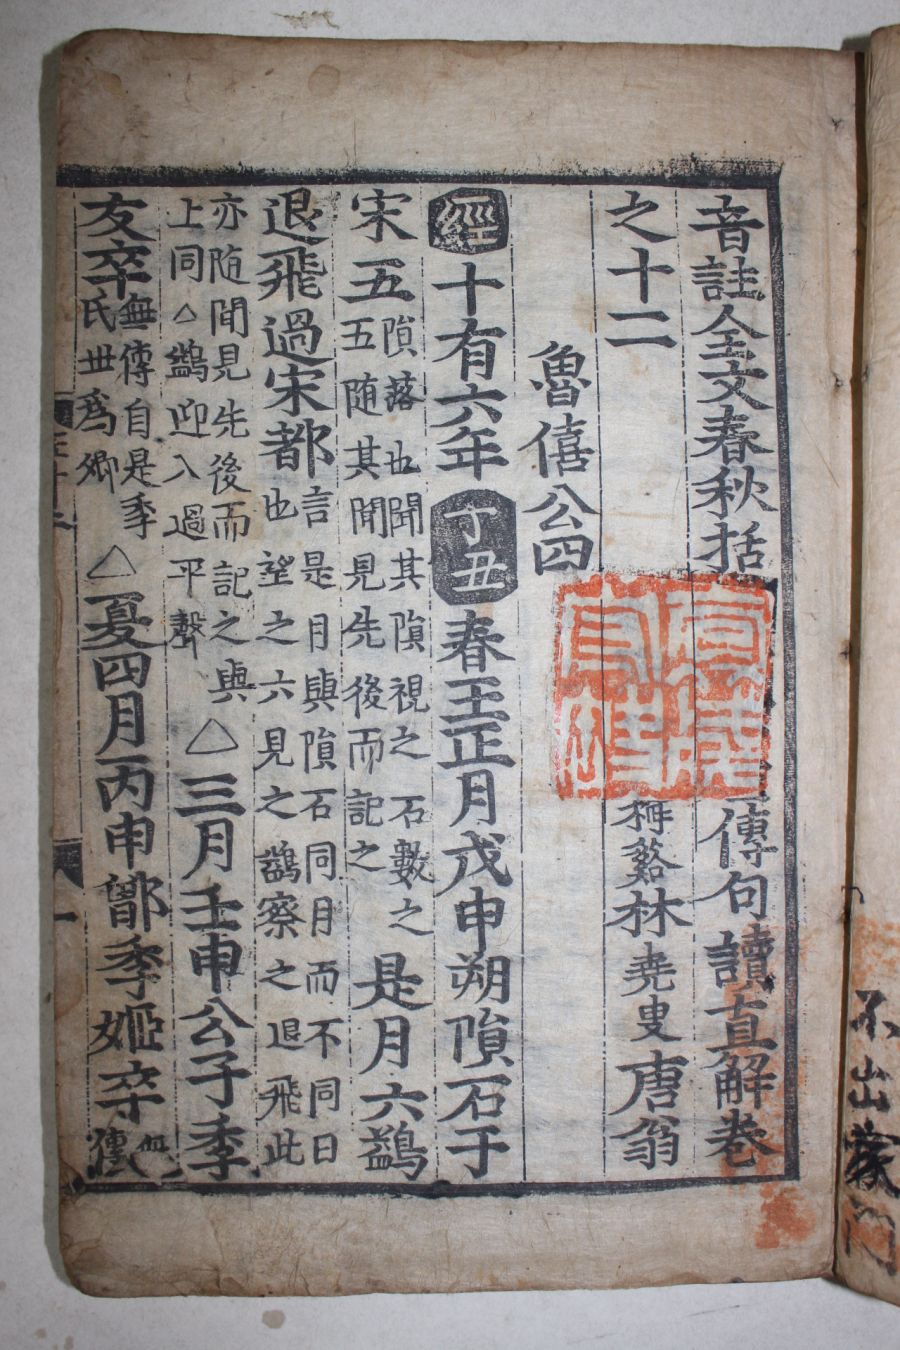 音註全文春秋括傳句讀直解卷
之十二谿林堯叟唐翁
魯僖公四
經十有六年丁丑春王正月戊申朔隕石于
宋五隕落也聞其隕視之石數之五随其聞見先後而記之是月六鷁
退飛過宋都言是月與隕石同月而不同日也望之六見之鷁察之退飛此
亦随聞見先後而記之與上同△鷁迎入過平聲△三月壬申公子季
友卒無傳自是季氏丗爲卿△夏四月丙申鄫季姬卒無傳
不出